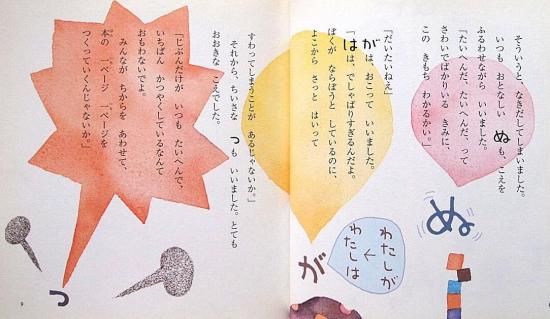 そういうと、なきだしてしまいました。
いつも おとなしい ぬも、こえを
ふるわせながら いいました。
「たいへんだ、たいへんだ、って
さわいでばかりいる きみに、
この きもち わかるかい。」
「だいたいねえ」
がは、おこって いいました。
「はは、でしゃばりすぎるんだよ。
ぼくが ならぼうと しているのに、
よこから さっと はいって
ぬ
わたしが
←
わたしは
が
8
すわってしまうことが あるじゃないか。」
それから、ちいさな っも いいました。とても
おおきな こえでした。
「じぶんだけが いつも たいへんで、
いちばん かつやくしているなんて
おもわないでよ。
みんなが ちからを あわせて、
本の 一ページ 一ページを
つくっていくんじゃないか。」
っ
9